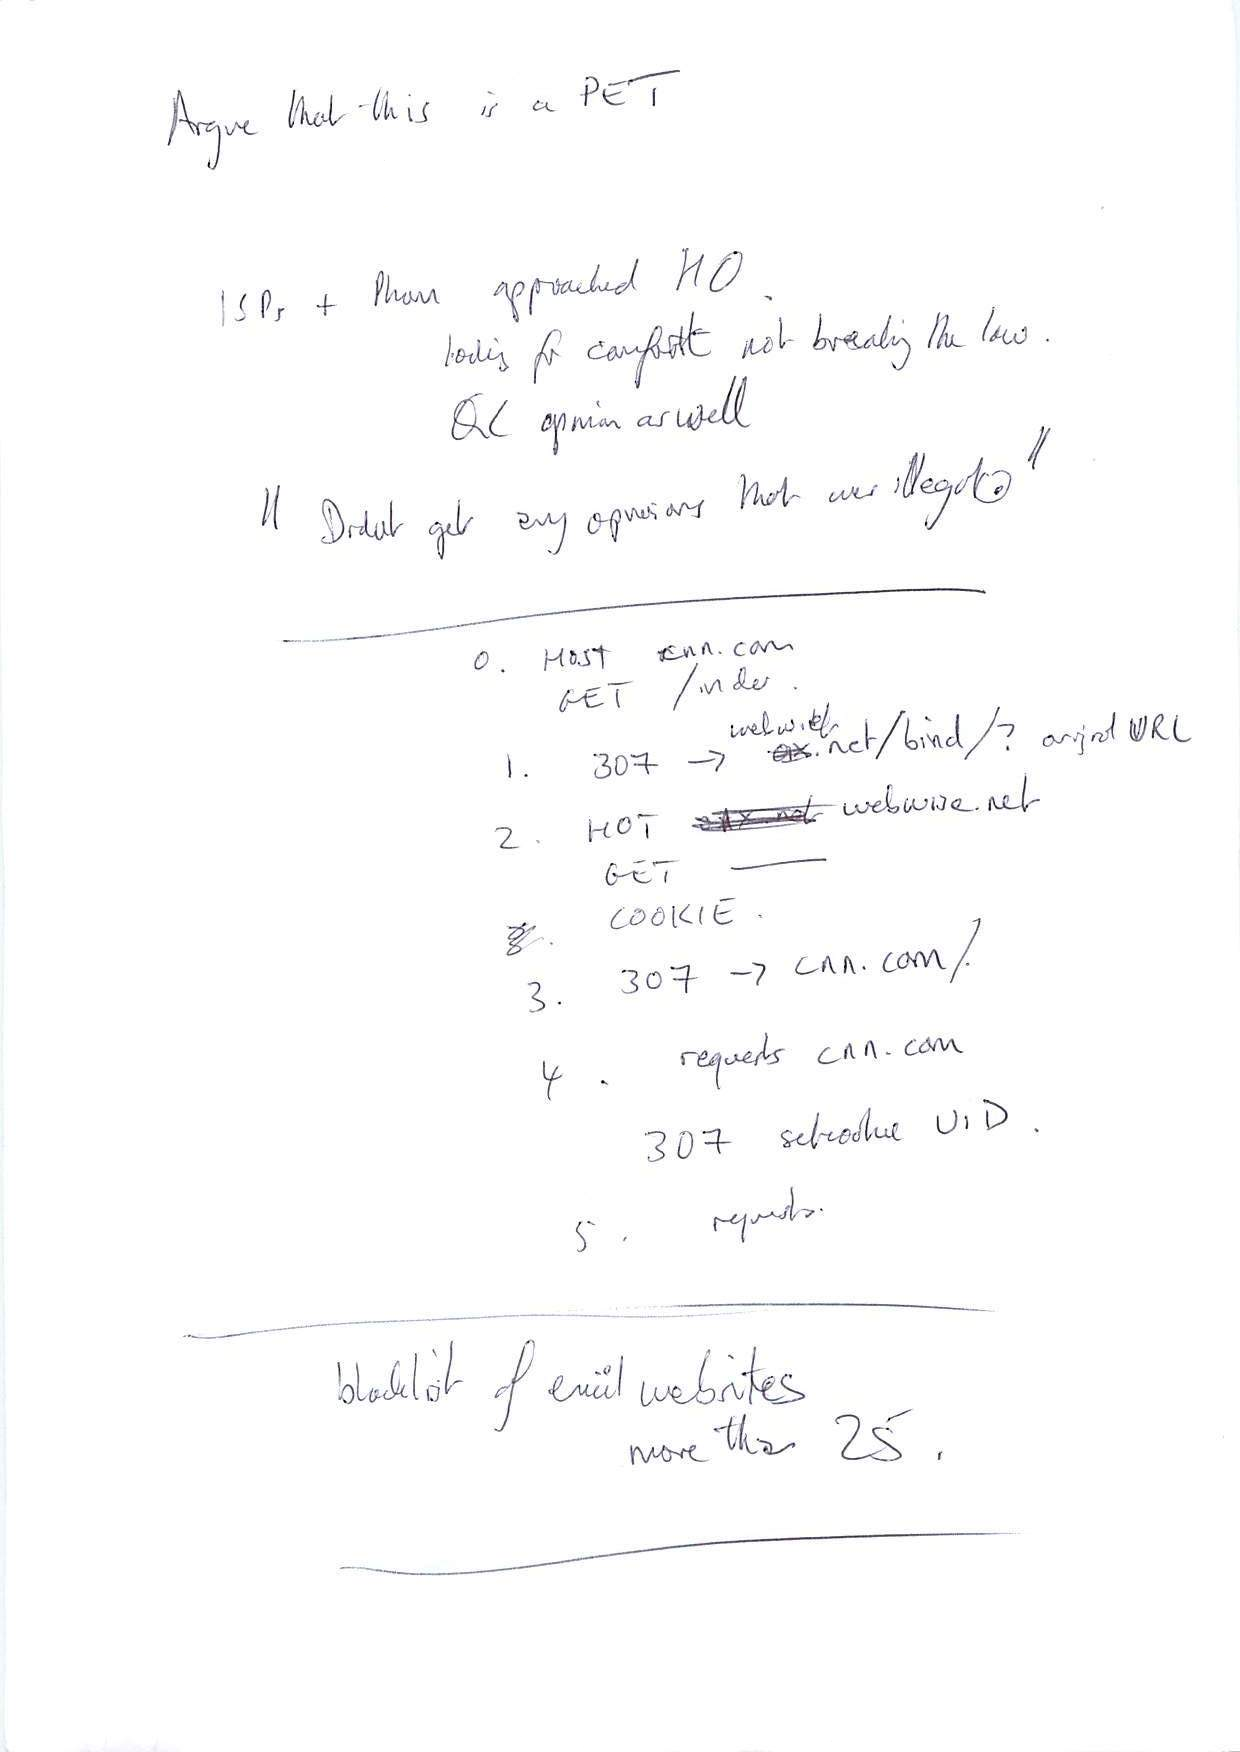 Argue that this is a PET
ISPs + Phorm approached HO.
looking for comfort not breaking the law.
QC opinion as well
" Didnt get any opinions that was illegal. "
0. HOST cnn.com
GET /index.
webwise
1. 307 → .net/bind/? original URL
2. HOT webwise.net
GET ——
COOKIE.
3. 307 → cnn.com/.
4. requests cnn.com
307 setcookie UID.
5. requests.
blacklist of email websites
more than 25.